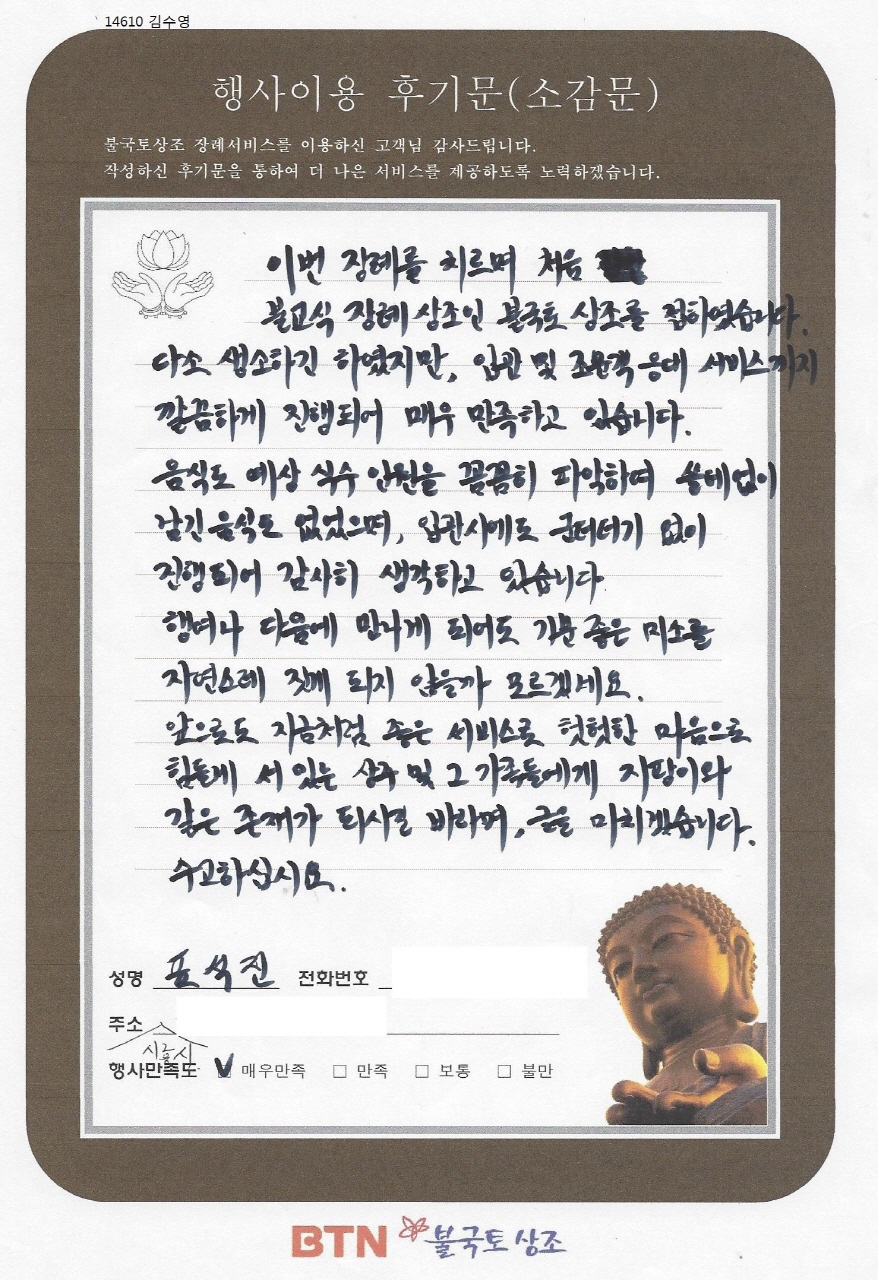 14610 김수영
행사이용 후기문(소감문)
불국토상조 장례서비스를 이용하신 고객님 감사드립니다.
작성하신 후기문을 통하여 더 나은 서비스를 제공하도록 노력하겠습니다.
이번 장례를 치르며 처음
불교식 장례 상조인 불국토 상조를 접하였습니다.
다소 생소하긴 하였지만, 입관 및 조문객 응대 서비스까지
깔끔하게 진행되어 매우 만족하고 있습니다.
음식도 예상 식수 인원을 꼼꼼히 파악하며 쓸데없이
남긴 음식도 없었으며, 입관시에도 군더더기 없이
진행되어 감사히 생각하고 있습니다
행여나 다음에 만나게 되어도 기분 좋은 미소를
자연스레 짓게 되지 않을까 모르겠네요.
앞으로도 지금처럼 좋은 서비스로 헛헛한 마음으로
힘들게 서 있는 상주 및 그 가족들에게 지팡이와
같은 존재가 되시길 바라며, 글을 마치겠습니다.
수고하십시요.
성명 표석진 전화번호
주소
시흥시
행사만족도 V □ 매우만족 □ 만족 □ 보통 □ 불만
BTN 불국토 상조